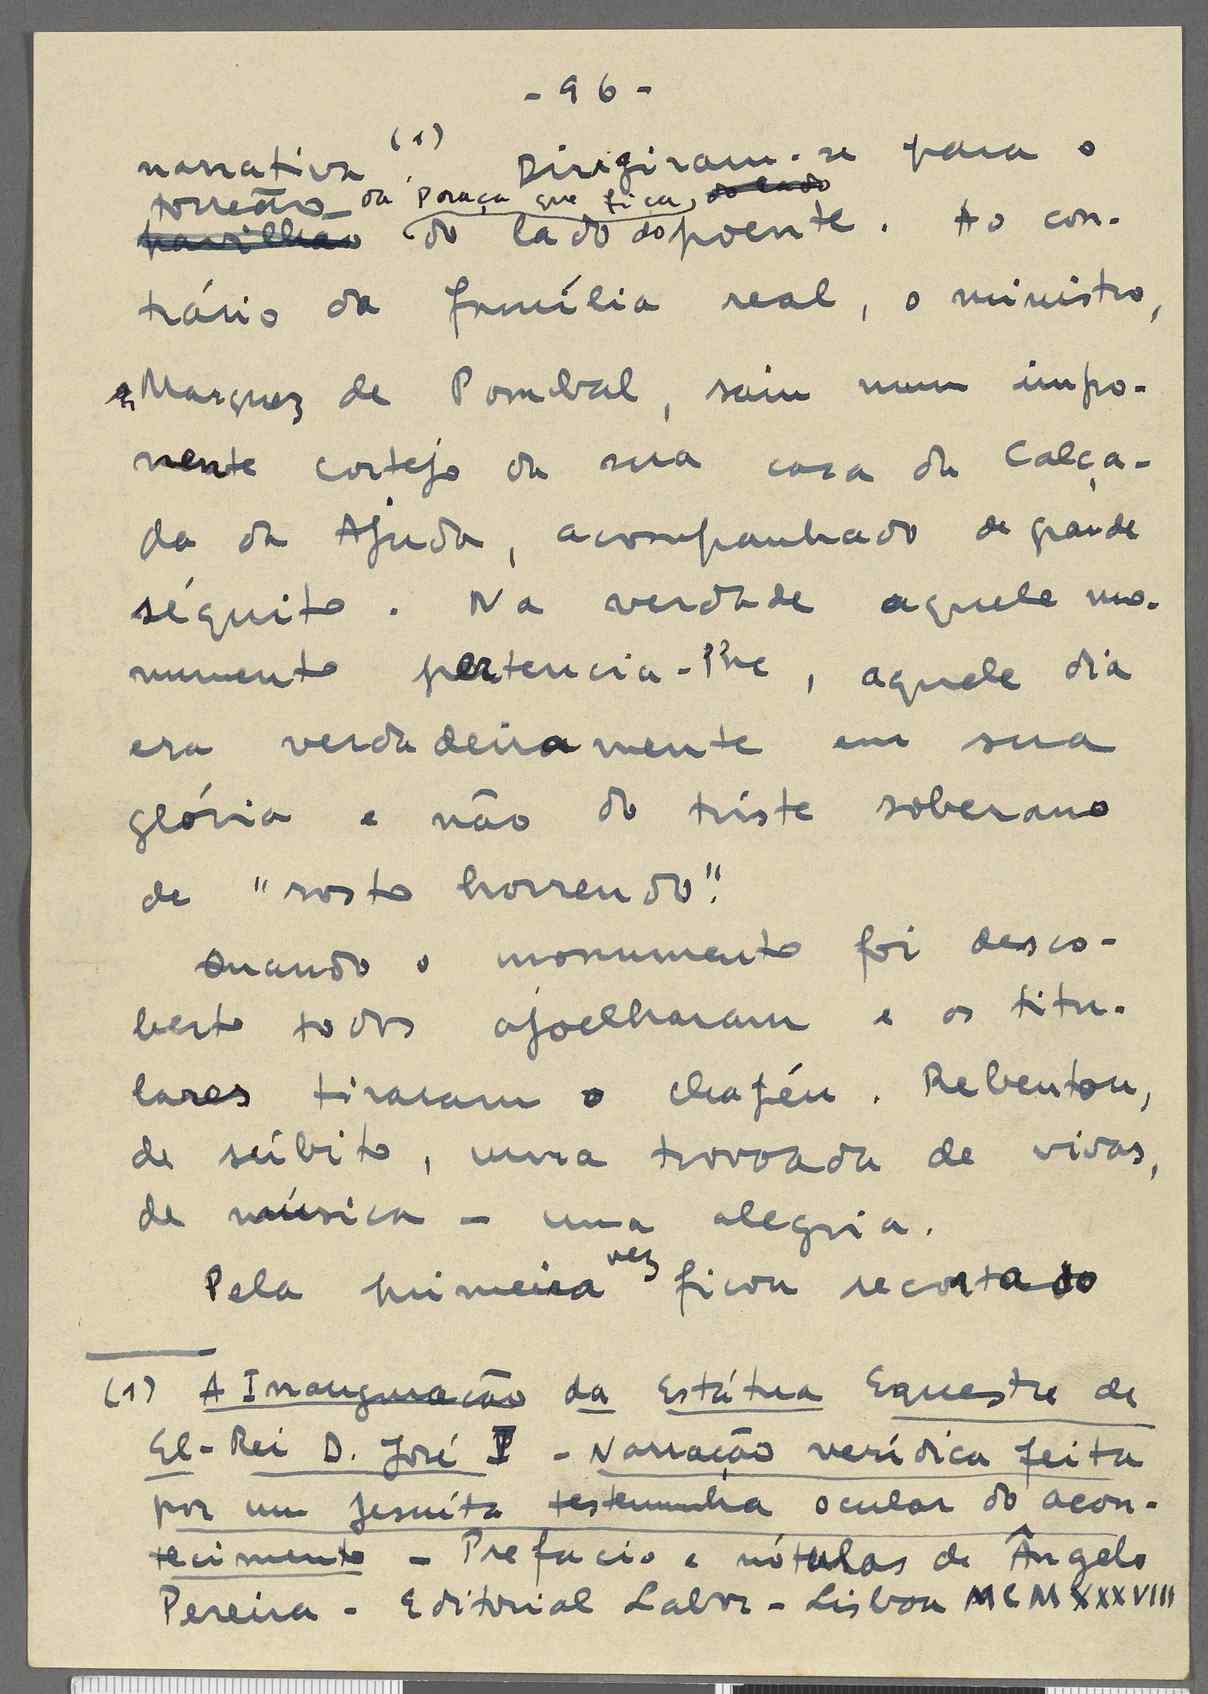 - 96 -
narrativa (1). Dirigiram-se para o
torreão da Praça que fica, do lado
pavilhão do lado do poente. Ao con-
trário da família real, o ministro,
Marquez de Pombal, saiu num impo-
nente cortejo da sua casa da Calça-
da da Ajuda, acompanhado de grande
séquito. Na verdade aquele mo-
numento pertencia-lhe, aquele dia
era verdadeiramente em sua
glória e não do triste soberano
de "rosto horrendo".
Quando o monumento foi desco-
berto todos ajoelharam e os titu-
lares tiraram o chapéu. Rebentou,
de súbito, uma trovoada de vivas,
de música - uma alegria.
Pela primeira vez ficou recortado
(1) A Inauguração da Estátua Equestre de
El-Rei D. José I - Narração verídica feita
por um jesuíta testemunha ocular do acon-
tecimento - Prefacio e nótulas de Ângelo
Pereira - Editorial Labor - Lisboa MCMXXXVIII